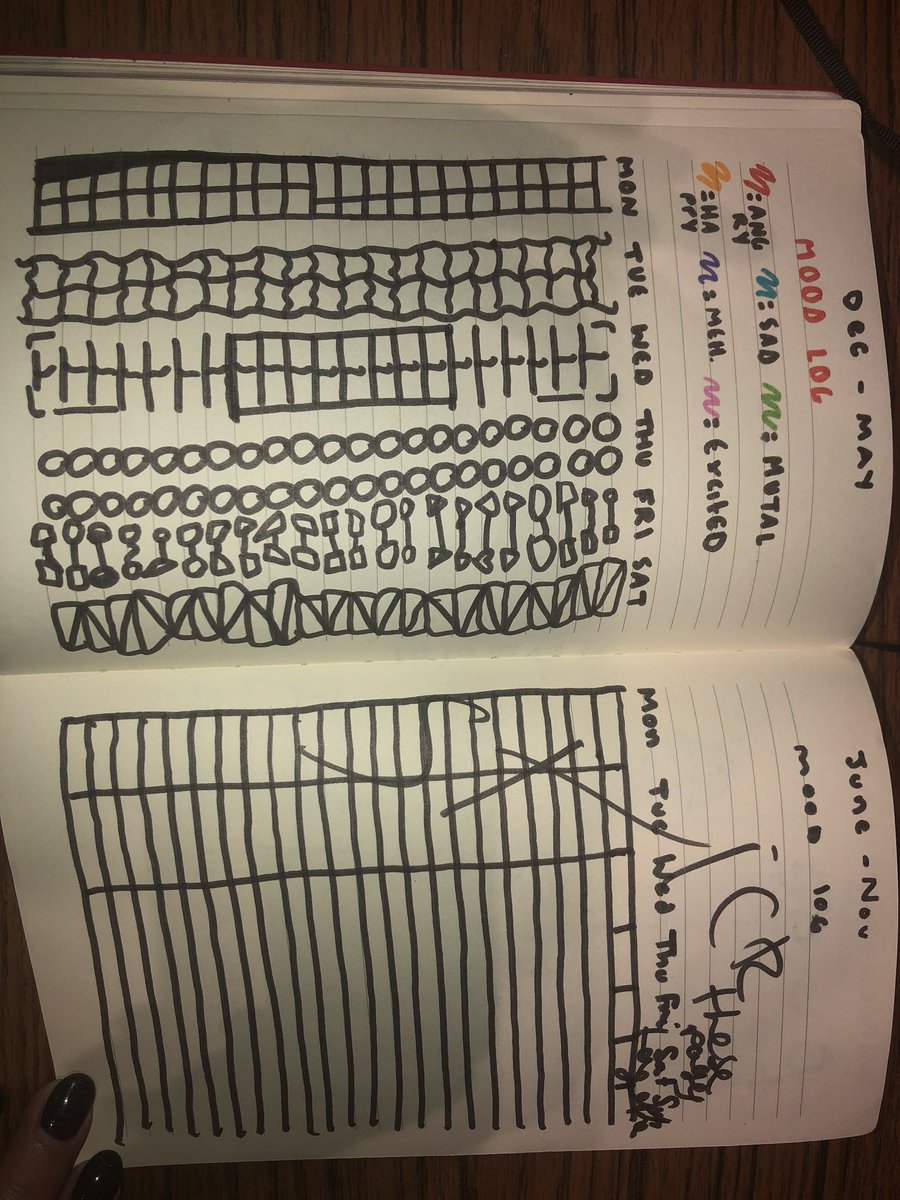 DEC - MAY
MOOD LOG
= ANG
RY
= SAD
= HA
PPY
= MEH.
= ExcitED
MON TUE WED THU FRI SAT
June - Nov
mood log
Mon Tue Wed Thu Fri Sat